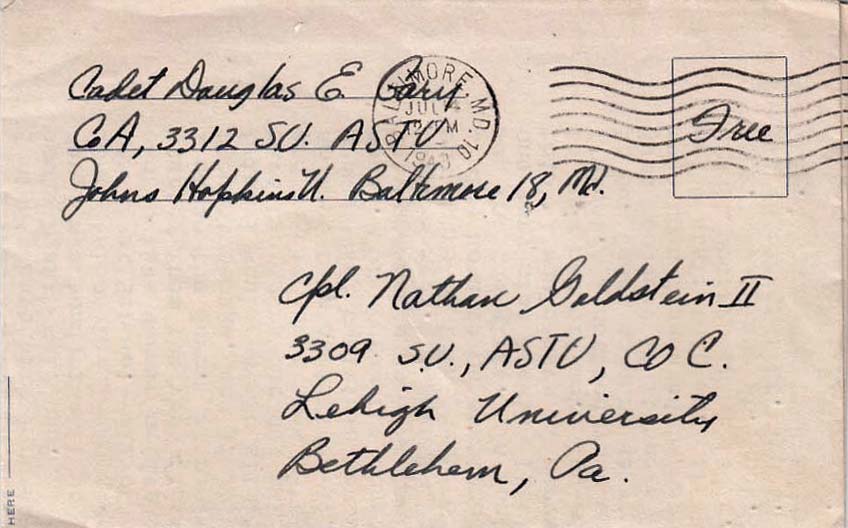 Cadet Douglas E. Cary
Co A, 3312 SU. ASTU
Johns Hopkins U. Baltimore 18, Md.
BALTIMORE, MD. 10
JUL
PM
1943
Free
Cpl. Nathan Goldstein II
3309 S.U., ASTU, CO C.
Lehigh University
Bethlehem, Pa.
HERE